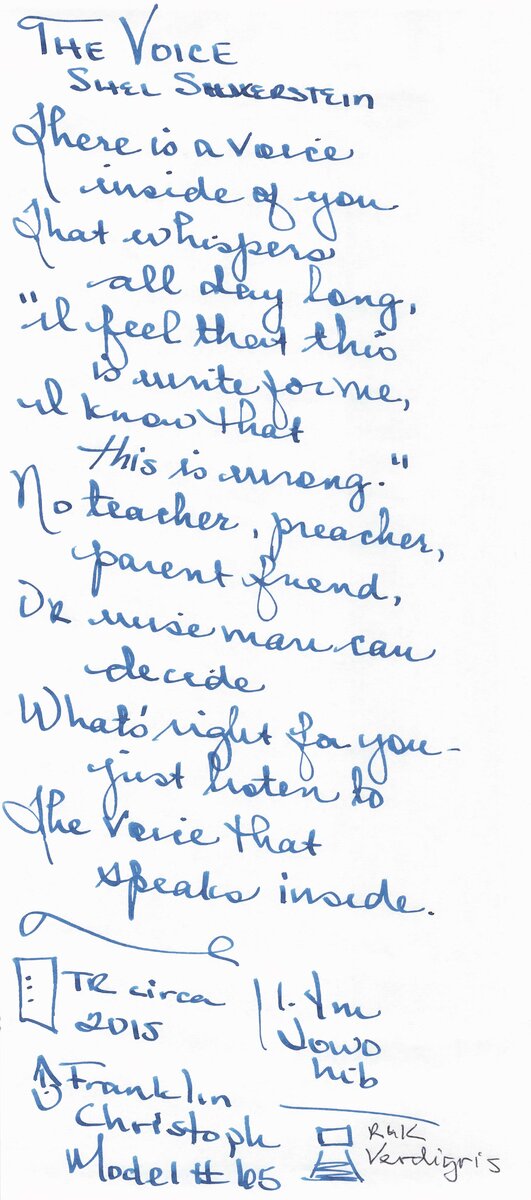 The Voice
Shel Silverstein
There is a voice
inside of you
That whispers
all day long,
"I feel that this
is write for me,
I know that
this is wrong."
No teacher, preacher,
parent friend,
Or wise man can
decide
What's right for you-
just listen to
The voice that
speaks inside.
TR circa
2015
1.1m
Jowo
nib
Franklin
Christoph
Model # 65
R&K
Verdigris